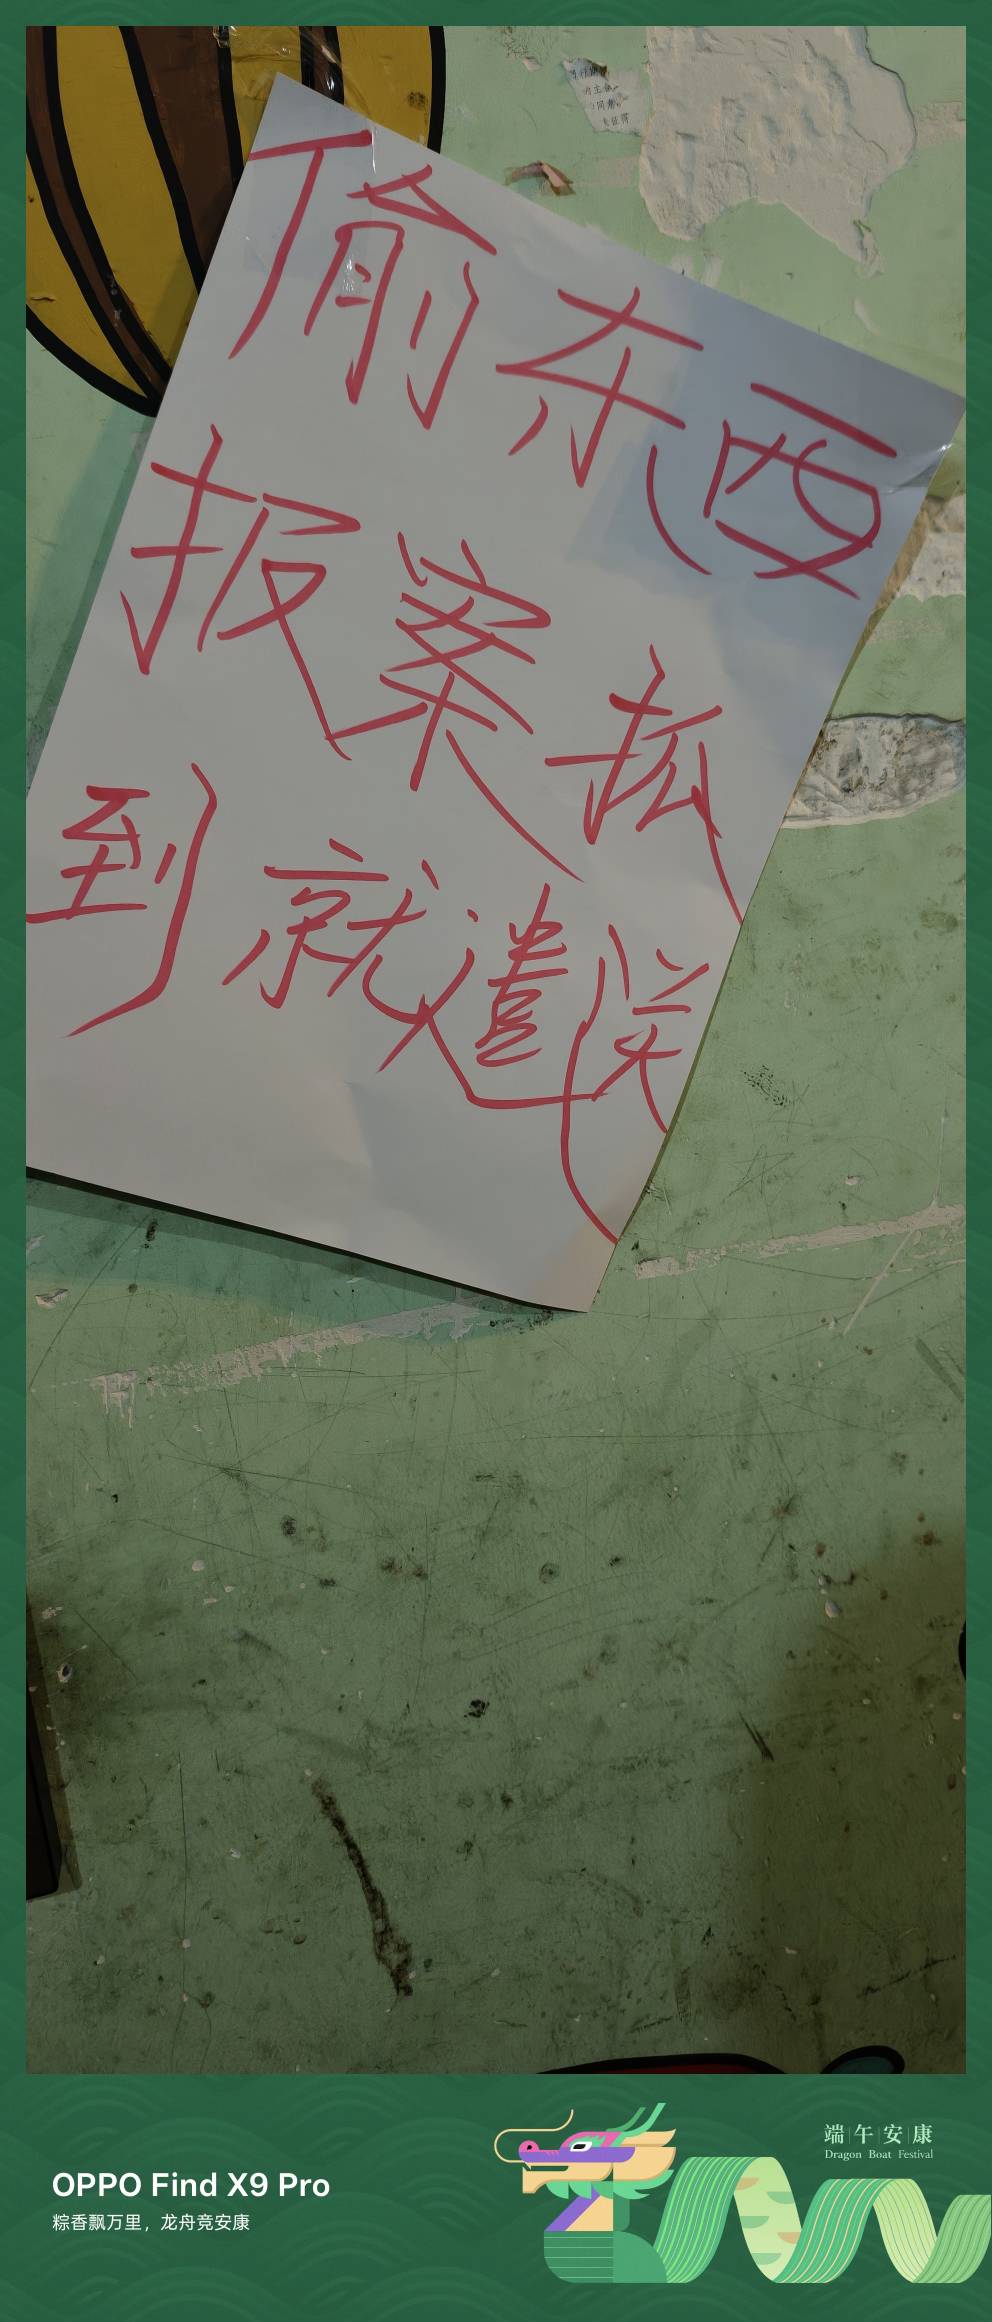 偷东西
报案抓
到就遣送
OPPO Find X9 Pro
粽香飘万里，龙舟竞安康
端午安康
Dragon Boat Festival